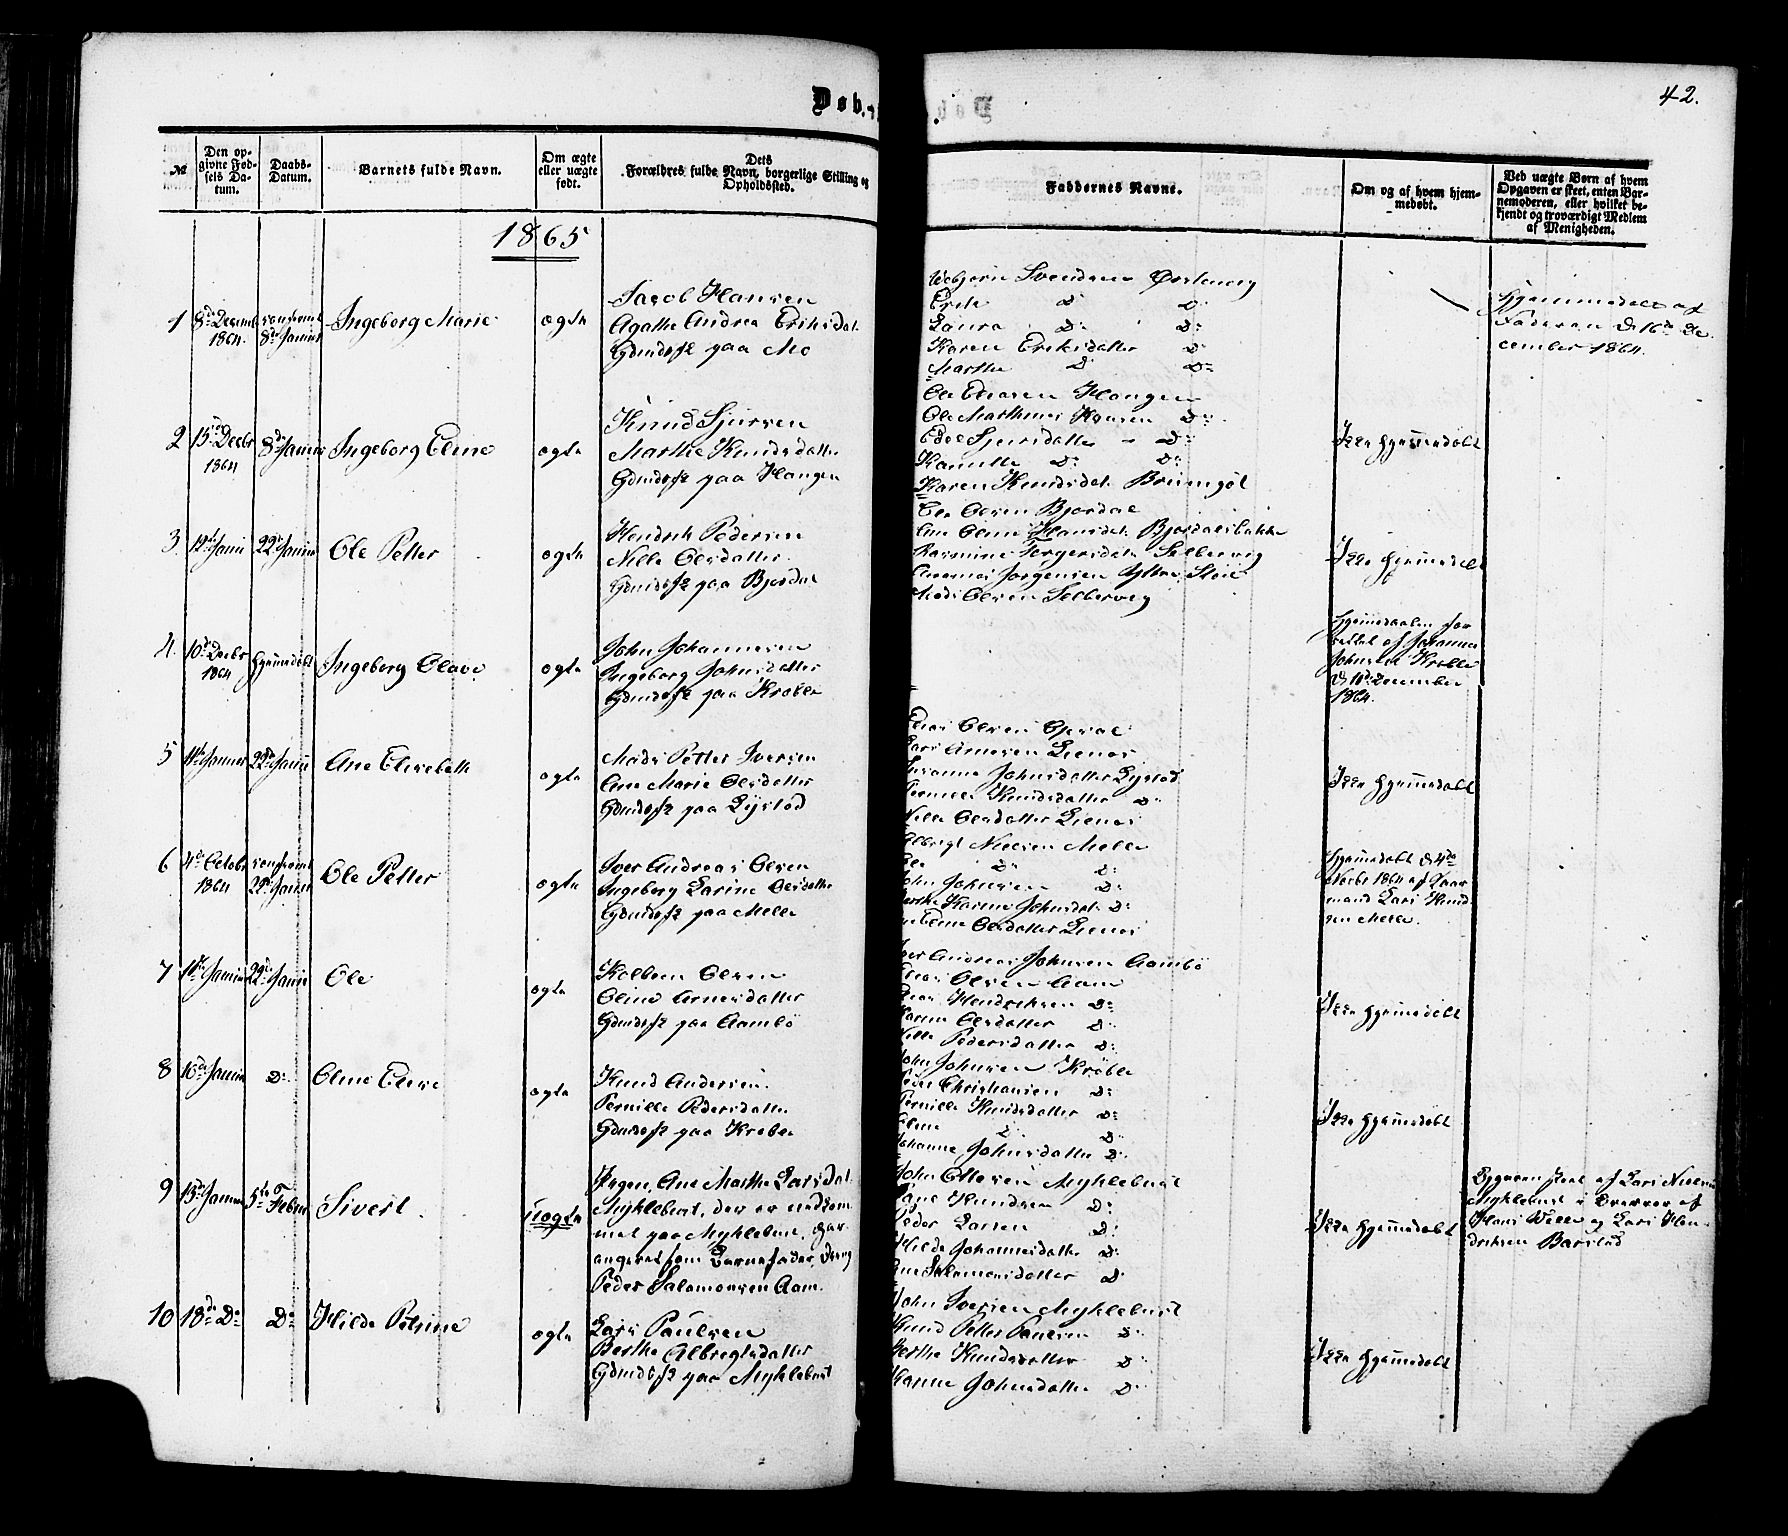 Døb.
42.
№
Den op-
givne Fød-
sels Da-
tum.
Daabs-
Datum.
Barnets fulde Navn.
Om ægte
eller uægte
født.
Dets
Forældres fulde Navn, borgerlige Stilling og
Opholdssted.
Faddernes Navne.
Om og af hvem hjem-
medøbt.
Ved uægte Børn af hvem
Opgaven er skeet, enten Bar-
nemoderen, eller hvilket be-
kjendt og troværdigt Medlem
af Menigheden.
1865
1
8de Decemb
1864.
8de Januar
Ingeborg Marie
ægte
Jacob Hansen
Agathe Andrea Eriksdat.
Gdmdsfk paa Mo
Svendsen
Erik D: D:
Laura D: D:
Karen Eriksdatter D:
Marthe D: D:
Hjemmedøbt af
Faderen d 16de De
cember 1864.
2
15de Decbr
1864
8de Januar
Ingeborg Eline
ægte
Knud Sjursen
Marthe Knudsdatter
Gdmdsfk paa Haugen
Ole Haugen
Ole Marthinus D:
Sjursdatter D:
D: D:
Karen Knudsdat.
Ikke hjemmedøbt
3
12te Janu
22de Janua
Ole Petter
ægte
Hendrik Pedersen
Nille Olesdatter
Gdmdsfk paa Bjørdal
Ole Olsen Bjørdal
Ane Oline Hansdat. Bjørdalsbakke
Rasmine
Jørgensen
Mads Olsen
Ikke hjemmedøbt
4
10de Decbr
1864
hjemmedøbt
Ingeborg Olave
ægte
John Johannesen
Ingeborg Johnsdatter
Gdmdsfk paa Krøble
Hjemmedaaben for
rettet af Johannes
Johnsen Krøble
d 11te December
1864.
5
22de Janua
Ane Elisebeth
ægte
Mads Petter Iversen
Ane Marie Olesdatter
Gdmdsfk paa
Olsen
Lars Arnesen
Susanne Johnsdatter
Knudsdatter D:
Nille Olesdatter
Ikke hjemmedøbt
6
4de Octobr
1864
22de Januar
Ole Petter
ægte
Iver Andreas Olsen
Ingeborg Larine Olesdatter
Gdmdsfk paa Melle
Albrigt Nielsen Melle
D: D:
John Johnsen D:
Marthe Karine Johnsdat. D:
Olesdatter
Hjemmedøbt d 4de
Novbr 1864 af Gaar
mand Lars Knud
sen Melle.
7
22de Janua
Ole
ægte
Kolbein Olsen
Oline Arnesdatter
Gdmdsfk paa Aambø
Iver Andreas Johnsen Aambø
Olsen Aam
Hendriksen D:
Karen Olesdatter D:
Nille Pedersdatter D:
Ikke hjemmedøbt
8
16de Janua
D:
Oline Elise
ægte
Knud Andersen
Pernille Pedersdatter
Gdmdsfk paa Krøble
John Johnsen Krøble
Peder Christiansen D:
Pernille Knudsdatter D:
D: D:
Johanne Johnsdatter D:
Ikke hjemmedøbt
9
13de Janua
5te Februar
Sivert
Uægte
Pigen Ane Marthe Larsdat.
Myklebust, der er indkom
met paa Myklebust, har
angivet som Barnefader, Dreng
Peder Salomonsen Aam.
John Ottesen Myklebust
Knudsen D:
Peder Larsen D:
Hilde Johannesdatter D:
Ane Salomonsdatter D:
Ikke hjemmedøbt
Opgaven skeet af Lars Nielsen
Myklebust i Nærvær af
Hans Velle og Lars Hen
driksen Barstad
10
18de D:
D:
Hilde Petrine
ægte
Lars Paulsen
Berthe Albregtsdatter
Gdmdsfk paa Myklebust
John Iversen Myklebust
Knud Petter Paulsen D:
Berthe Knudsdatter D:
Hanne Johnsdatter D:
Ikke hjemmedøbt